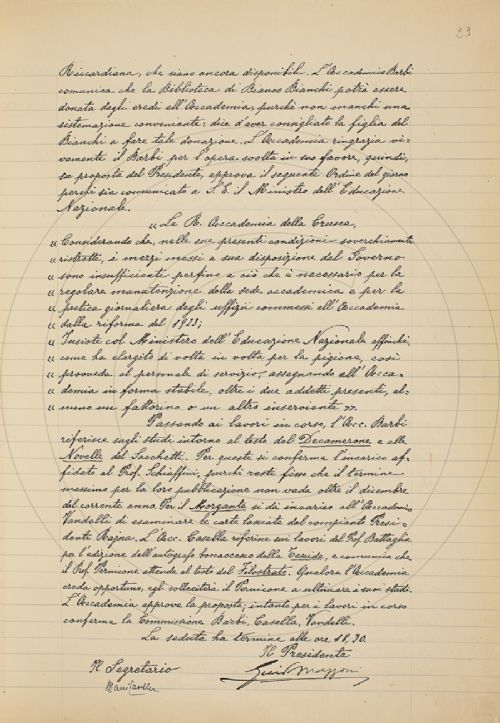 23
Riccardiana, che siano ancora disponibili. L'Accademico Barbi
comunica che la Biblioteca di Bianco Bianchi potrà essere
donata dagli eredi all'Accademia, purché non manchi una
sistemazione conveniente: dice d'aver consigliato la figlia del
Bianchi a fare tale donazione. L'Accademia ringrazia vi-
vamente il Barbi per l'opera svolta in suo favore, quindi,
su proposta del Presidente, approva il seguente Ordine del giorno
perché sia comunicato a S. E. il Ministro dell'Educazione
Nazionale.
« La R. Accademia della Crusca,
« Considerando che, nelle sue presenti condizioni soverchiamente
« ristrette, i mezzi messi a sua disposizione dal Governo
« sono insufficienti perfino a ciò che è necessario per la
« regolare manutenzione della sede accademica e per la
« pratica giornaliera degli uffizii commessi all'Accademia
« dalla riforma del 1923;
« Insiste col Ministero dell'Educazione Nazionale affinché,
« come ha elargito di volta in volta per la pigione, così
« provveda al personale di servizio, assegnando all'Acca-
« demia in forma stabile, oltre i due addetti presenti, al-
« meno un fattorino o un altro inserviente ».
Passando ai lavori in corso, l'Acc. Barbi
riferisce sugli studi intorno al testo del Decamerone e alle
Novelle del Sacchetti. Per queste si conferma l'incarico af-
fidato al Prof. Schiaffini, purché resti fisso che il termine
massimo per la loro pubblicazione non vada oltre il dicembre
del corrente anno. Per il Morgante si dà incarico all'Accademico
Vandelli di esaminare le carte lasciate dal compianto Presi-
dente Rajna. L'Acc. Casella riferisce sui lavori del Prof. Battaglia
per l'edizione dell'autografo boccaccesco della Teseida, e comunica che
il Prof. Pernicone attende al testo del Filostrato. Qualora l'Accademia
creda opportuno, egli solleciterà il Pernicone a ultimare i suoi studi.
L'Accademia approva la proposta; intanto per i lavori in corso
conferma la Commissione Barbi, Casella, Vandelli.
La seduta ha termine alle ore 18,30.
Il Presidente
Il Segretario
Guido Mazzoni